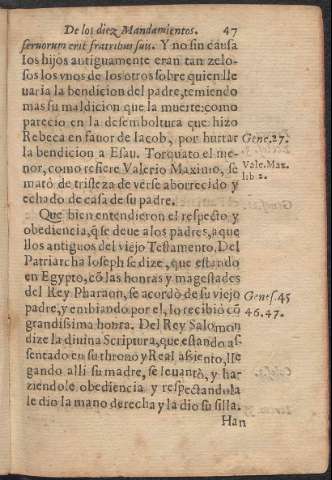 De los diez Mandamientos. 47
seruorum erit fratribus suis. Y no sin causa
los hijos antiguamente eran tan zelo-
sos los vnos de los otros sobre quien lle
uaria la bendicion del padre, temiendo
mas su maldicion que la muerte: como
parecio en la desemboltura que hizo
Rebeca en fauor de Iacob, por hurtar Gene. 27.
la bendicion a Esau. Torquato el me-
nor, como refiere Valerio Maximo, se Vale. Max.
lib 2.
mató de tristeza de verse aborrecido y
echado de casa de su padre.
Que bien entendieron el respecto y
obediencia, q̃ se deue a los padres, aque
llos antiguos del viejo Testamento. Del
Patriarcha Ioseph se dize, que estando
en Egypto, cõ las honras y magestades
del Rey Pharaon, se acordò de su viejo Genes. 45
padre, y embiando por el, lo recibiò cõ 46. 47.
grandissima honra. Del Rey Salomon
dize la diuina Scriptura, que estando as-
sentado en su throno y Real assiento, lle
gando alli su madre, se leuantò, y ha-
ziendole obediencia y respectandola
le dio la mano derecha y la dio su silla.
Han